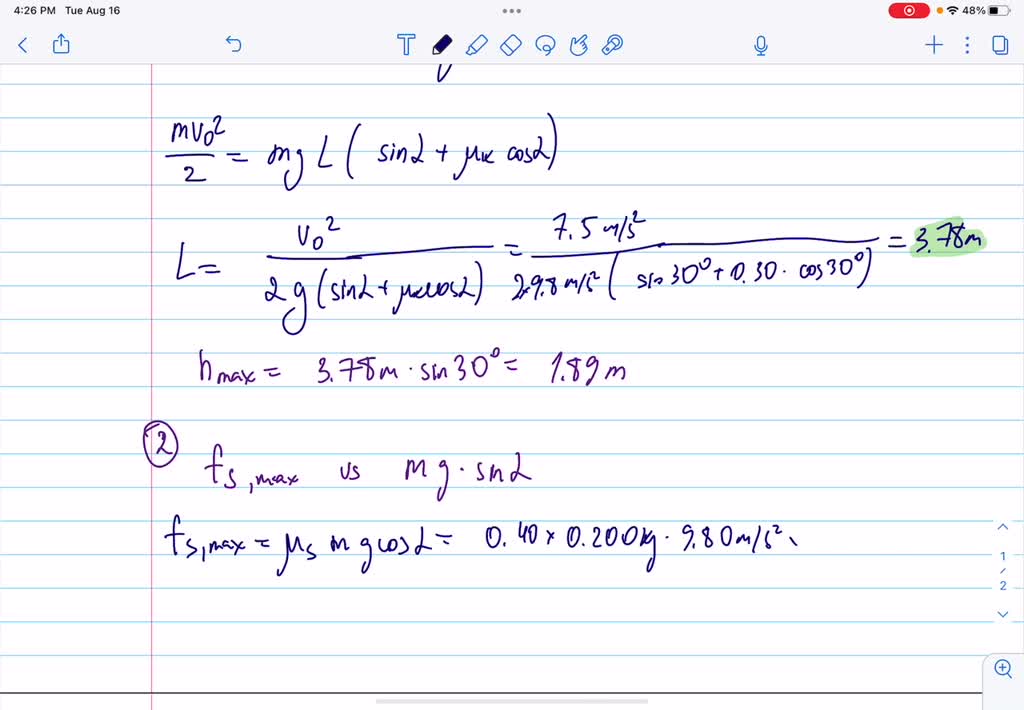 4:26 PM Tue Aug 16
48%
T
mv₀²/2 = mgL( sinα + μₖ cosα)
L = v₀²/2g(sinα + μₖcosα) = 7.5 m/s²/2×9.8 m/s²( sin 30° + 0.30 · cos 30°) = 3.78m
hmax = 3.78m · sin 30° = 1.89 m
2
fs,max vs mg · sinα
fs,max = μs m g cosα = 0.40 × 0.200kg · 9.80 m/s² ·
1
/
2